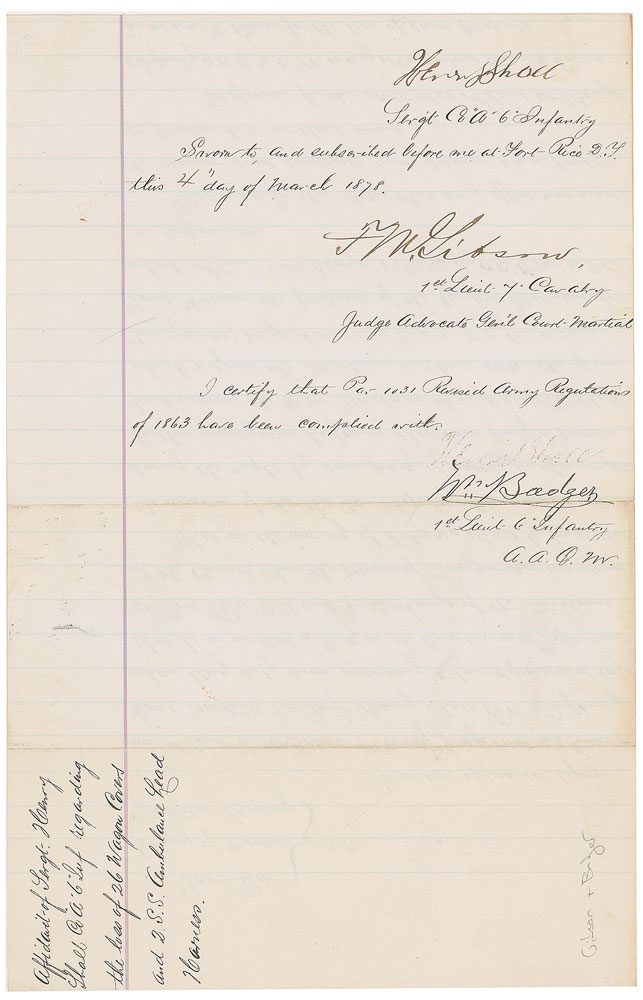 Henry Shall
Sergt Co "A" 6" Infantry
Sworn to and subscribed before me at Fort Rice D.T.
this 4" day of March 1878.
F M. Gibson,
1st Lieut 7" Cavalry
Judge Advocate Gen'l Court-Martial
I certify that Par 1031 Revised Army Regulations
of 1863 have been complied with.
Wm Badger
1st Lieut 6" Infantry
A. A. Q. M.
Affidavit of Sergt. Henry
Shall Co "A" 6" Inf regarding
the loss of 26 Wagon Covers
and 2 S.S. Ambulance Lead
Harness.
Gibson + Badger